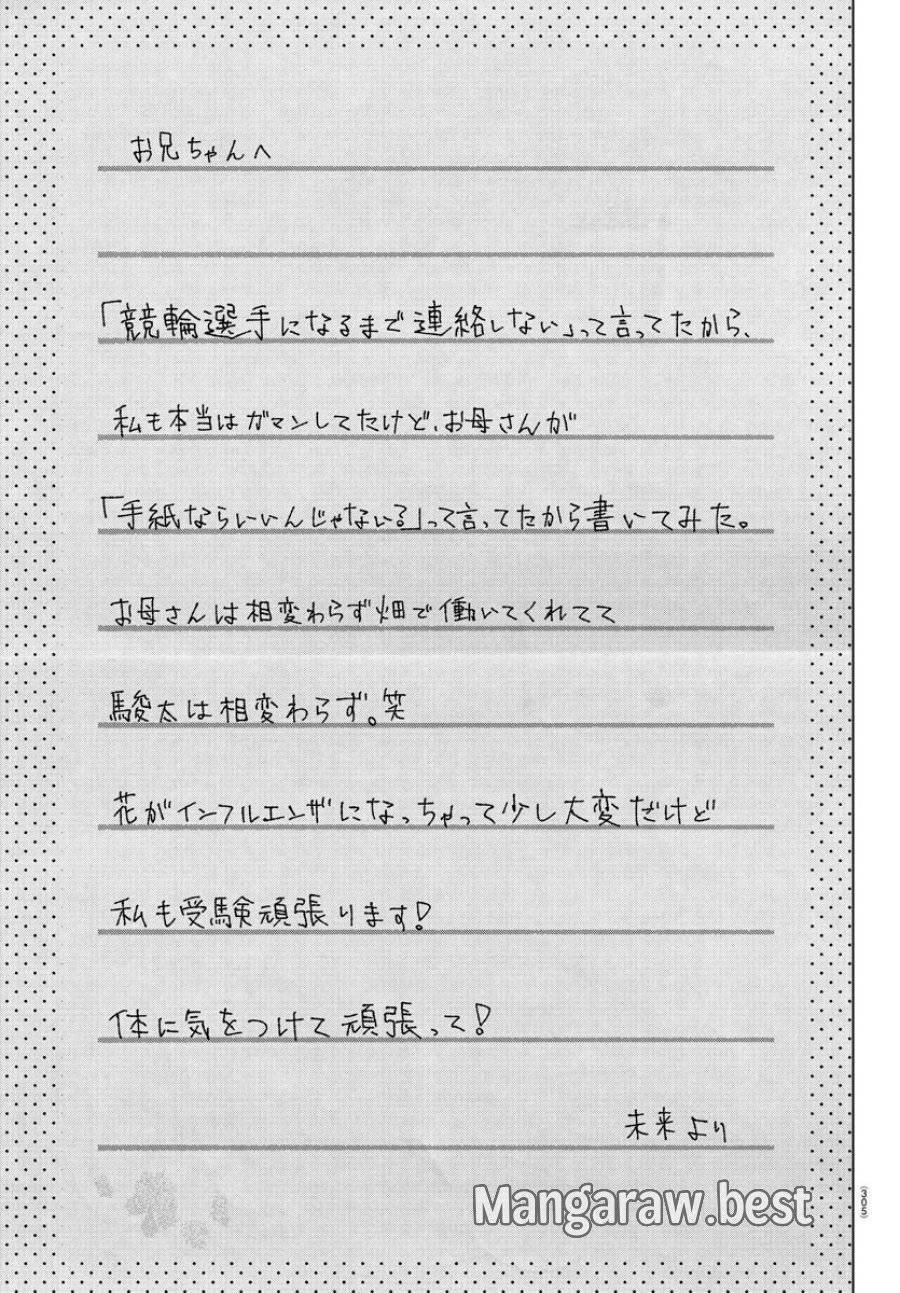 お兄ちゃんへ
「競輪選手になるまで連絡しない」って言ってたから、
私も本当はガマンしてたけど、お母さんが
「手紙ならいいんじゃないる」って言ってたから書いてみた。
お母さんは相変わらず畑で働いてくれてて
駿太は相変わらず。笑
花がインフルエンザになっちゃって少し大変だけど
私も受験頑張ります!
体に気をつけて頑張って!
未来より
(305)
Mangaraw.best